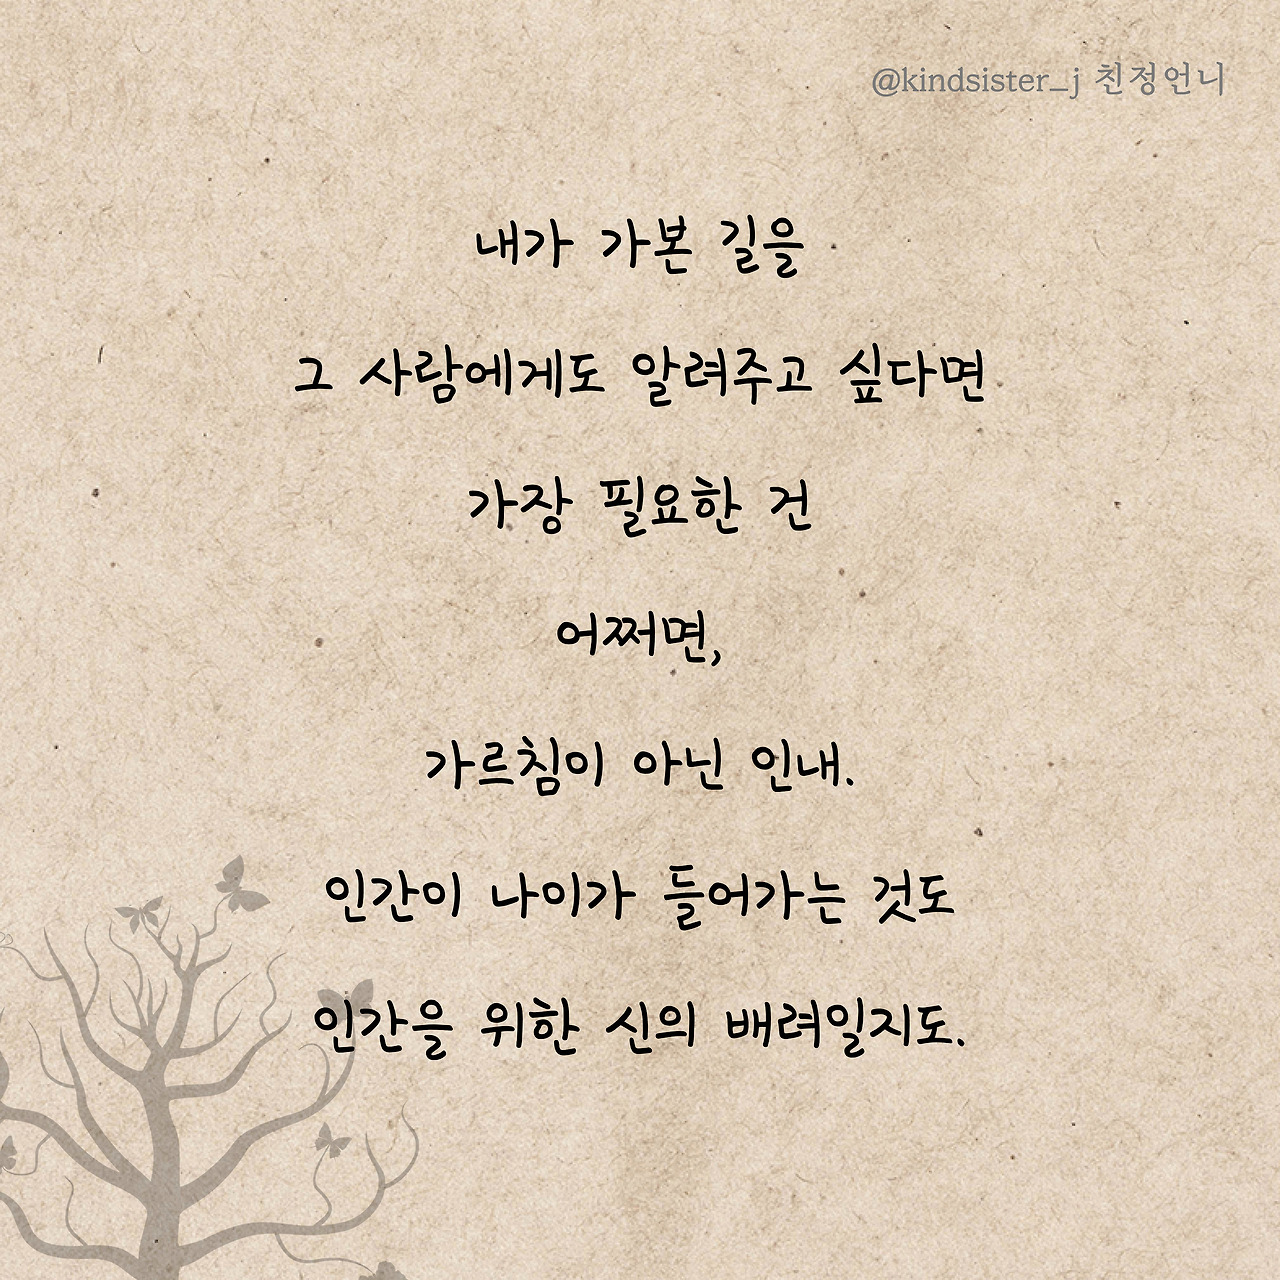 @kindsister_j 친정언니
내가 가본 길을
그 사람에게도 알려주고 싶다면
가장 필요한 건
어쩌면,
가르침이 아닌 인내.
인간이 나이가 들어가는 것도
인간을 위한 신의 배려일지도.